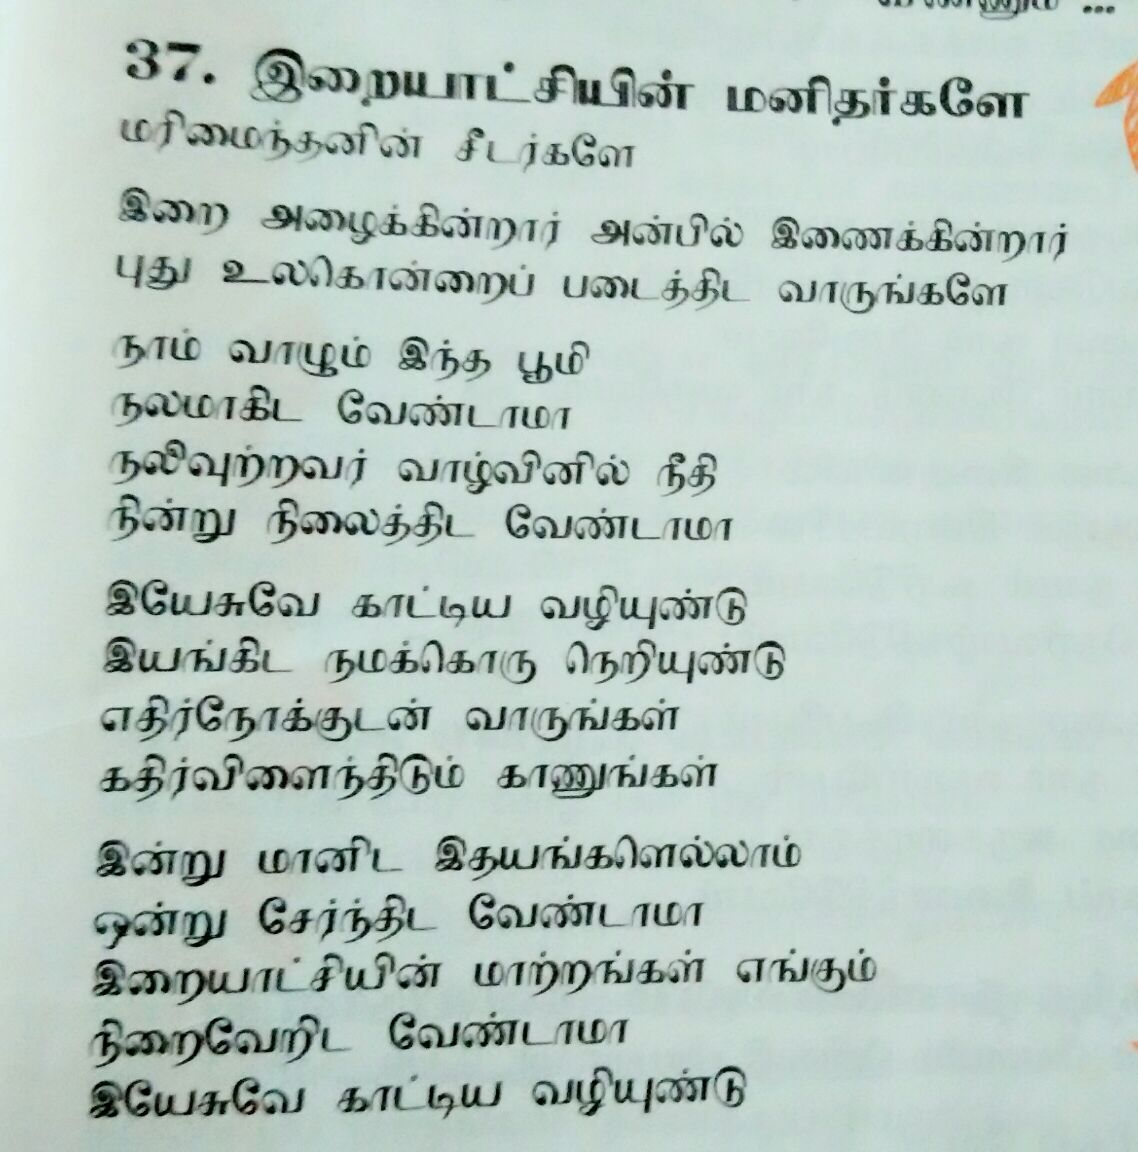 37. இறையாட்சியின் மனிதர்களே
மரிமைந்தனின் சீடர்களே
இறை அழைக்கின்றார் அன்பில் இணைக்கின்றார்
புது உலகொன்றைப் படைத்திட வாருங்களே
நாம் வாழும் இந்த பூமி
நலமாகிட வேண்டாமா
நலிவுற்றவர் வாழ்வினில் நீதி
நின்று நிலைத்திட வேண்டாமா
இயேசுவே காட்டிய வழியுண்டு
இயங்கிட நமக்கொரு நெறியுண்டு
எதிர்நோக்குடன் வாருங்கள்
கதிர்விளைந்திடும் காணுங்கள்
இன்று மானிட இதயங்களெல்லாம்
ஒன்று சேர்ந்திட வேண்டாமா
இறையாட்சியின் மாற்றங்கள் எங்கும்
நிறைவேறிட வேண்டாமா
இயேசுவே காட்டிய வழியுண்டு